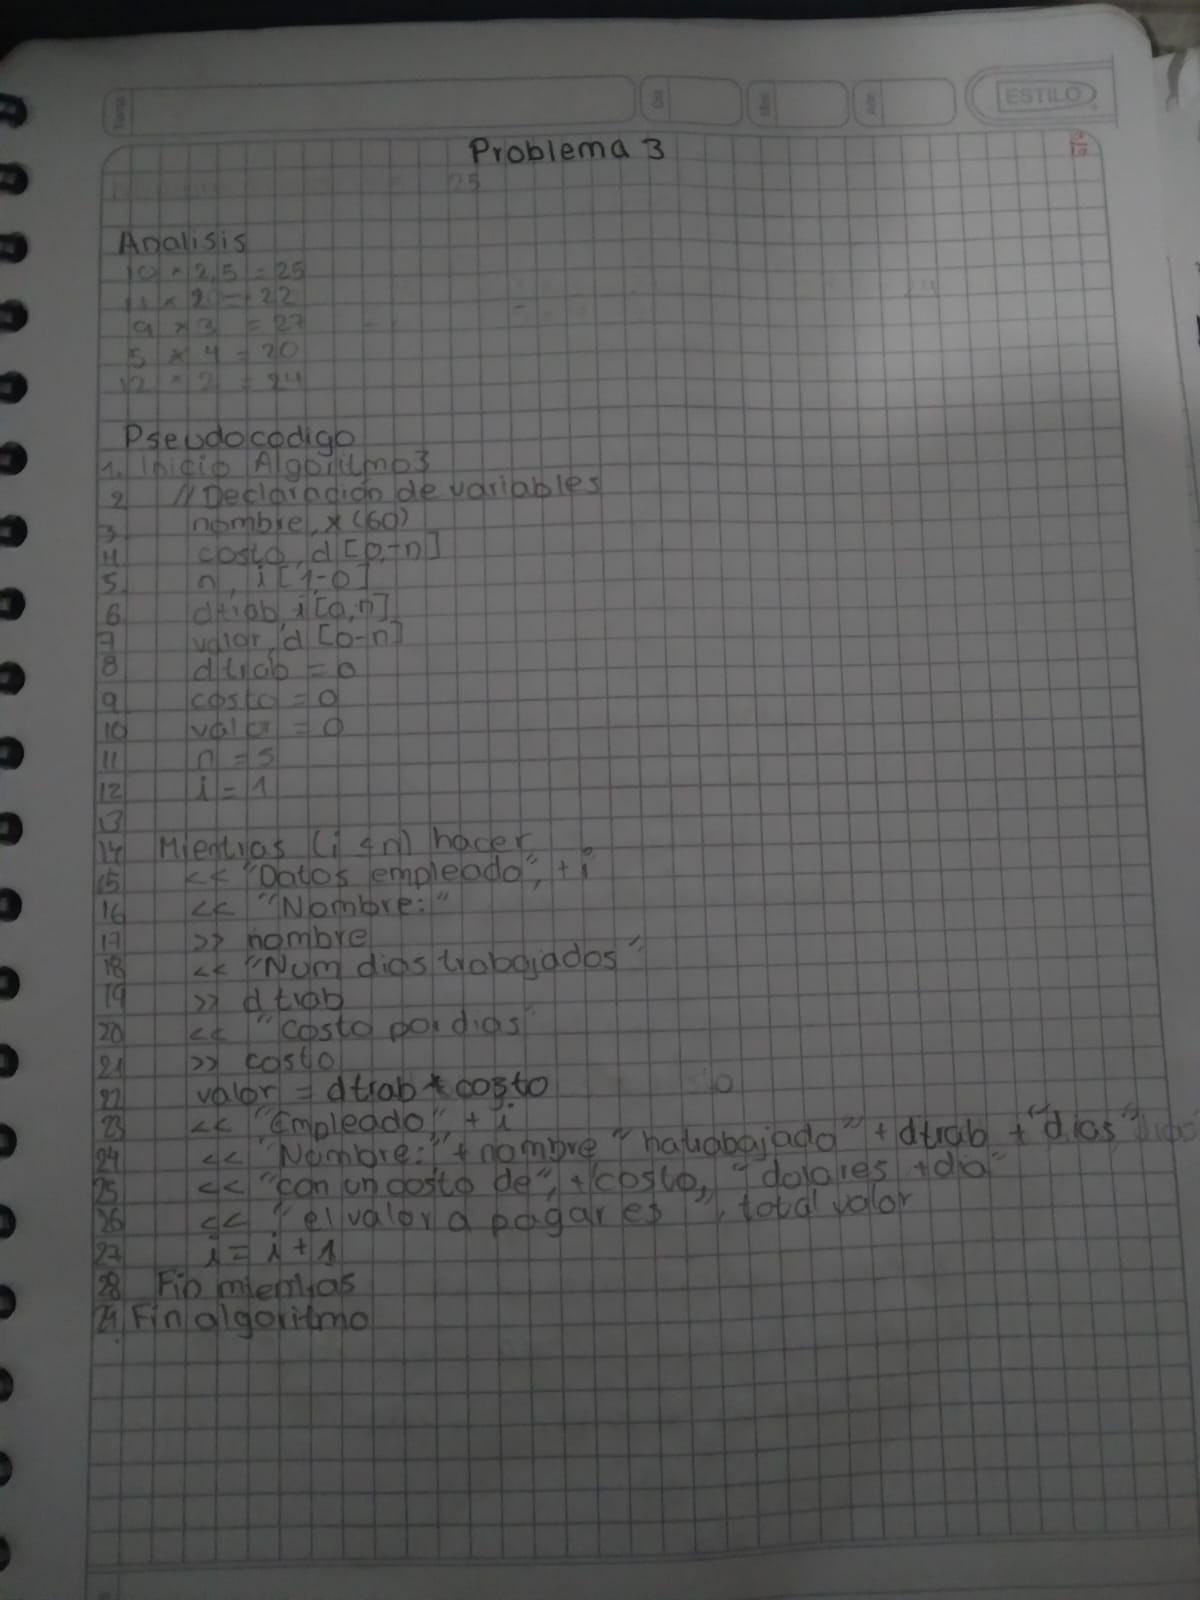 ESTILO
Problema 3
25
Analisis
10 × 2,5 = 25
11 × 2 = 22
9 × 3 = 27
5 × 4 = 20
12 × 2 = 24
Pseudocodigo
1. Inicio Algoritmo3
2 // Declaración de variables
3 nombre, x (60)
4 costo, d [0,-n]
5 n, i [1-0]
6 dtrab, i [0,n]
7 valor, d [0-n]
8 dtrab = 0
9 costo = 0
10 valor = 0
11 n = 5
12 i = 1
13
14 Mientras (i ≤ n) hacer
15 << "Datos empleado", + i
16 << "Nombre:"
17 >> nombre
18 << "Num dias trabajados"
19 >> dtrab
20 << "costo por dias"
21 >> costo
22 valor = dtrab * costo
23 << "Empleado", + i
24 << "Nombre:" + nombre "ha trabajado" + dtrab + "dias"
25 << "con un costo de", + costo, "dolares + dia"
26 << "el valor a pagar es", total valor
27 i = i + 1
28 Fin mientras
29 Fin algoritmo